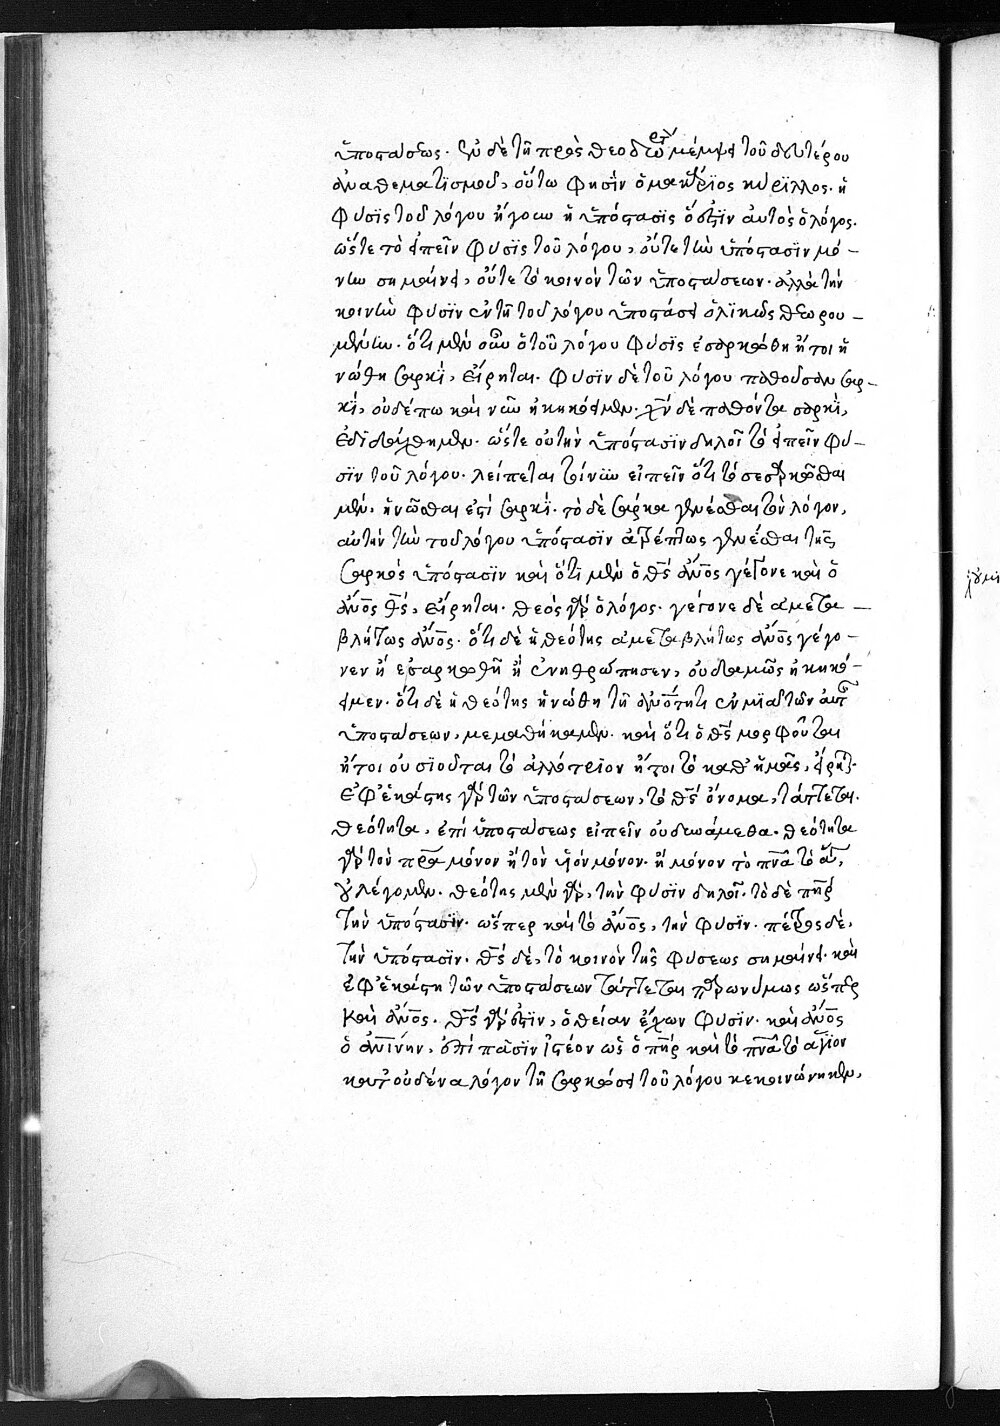 ὑποστάσεως. ἐν δὲ τῇ πρὸς θεοδώριτον μέμψει τοῦ δευτέρου
ἀναθεματϊσμοῦ, οὕτω φησὶν ὁ μακάρϊος κύριλλος. ἡ
φύσϊς τοῦ λόγου ἤγουν ἡ ὑπόστασϊς ὅ ἐστϊν αὐτὸς ὁ λόγος.
ὥστε τὸ εἰπεῖν φύσϊς τοῦ λόγου, οὔτε τὴν ὑπόστασϊν μό-
νην σημαίνει, οὔτε τὸ κοινὸν τῶν ὑποστάσεων. ἀλλὰ τὴν
κοινὴν φύσϊν ἐν τῇ τοῦ λόγου ὑποστάσει ὁλϊκῶς θεωρου-
μένην. ὅτι μὲν οὖν ὁ τοῦ λόγου φύσϊς ἐσαρκώθη ἤτοι ἡ
νώθη σαρκὶ, εἴρηται. φύσϊν δὲ τοῦ λόγου παθοῦσαν σαρ-
κὶ, οὐδέπω καὶ νῦν ἀκηκόαμεν. χν δὲ παθόντα σαρκὶ,
ἐδϊδάχθημεν. ὥστε οὐ τὴν ὑπόστασϊν δηλοῖ τὸ εἰπεῖν φύ-
σϊν τοῦ λόγου. λείπεται τοίνυν εἰπεῖν ὅτι τὸ σεσαρκῶσθαι
μὲν, ἡνῶσθαι ἐστί σαρκϊ. τὸ δὲ σάρκα γενέσθαι τὸν λόγον,
αὐτὴν τὴν τοῦ λόγου ὑπόστασϊν ἀτρέπτως γενέσθαι τῆς
σαρκὸς ὑπόστασϊν καὶ ὅτϊ μὲν ὁ θς ἄνος γέγονε καὶ ὁ
ἄνος θς, εἴρηται. θεὸς γὰρ ὁ λόγος. γέγονε δὲ ἀμετα-
βλήτως ἄνος. ὅτι δὲ ἡ θεότης ἀμεταβλήτως ἄνος γέγο-
νεν ἢ ἐσαρκώθη ἢ ἐνηνθρώπησεν, οὐδαμῶς ἀκηκό-
αμεν. ὅτι δὲ ἡ θεότης ἡνώθη τῇ ἀνότητι ἐν μϊᾷ τῶν αὐτῆς
ὑποστάσεων, μεμαθήκαμεν. καὶ ὅτι ὁ θς μορφοῦται
ἤτοι οὐσιοῦται τὸ ἀλλότριον ἤτοι τὸ καθ ἡμᾶς, εἴρηται.
ἐφ ἑκάστης γὰρ τῶν ὑποστάσεων, τὸ θς ὄνομα, τάττεται.
θεότητα, ἐπὶ ὑποστάσεως εἰπεῖν οὐ δυνάμεθα. θεότητα
γὰρ τὸν πρα μόνον ἢ τὸν υἱὸν μόνον. ἢ μόνον τὸ πνα τὸ ἅγιον,
οὐ λέγομεν. θεότης μὲν γὰρ, τὴν φύσϊν δηλοῖ. τὸ δὲ πηρ
τὴν ὑπόστασϊν. ὥσπερ καὶ τὸ ἄνος, τὴν φύσϊν. πέτρος δὲ,
τὴν ὑπόστασϊν. θς δὲ, τὸ κοινὸν τῆς φύσεως σημαίνει. καὶ
ἐφ ἑκάστη τῶν ὑποστάσεων τάττεται παρωνύμως ὥσπερ
καὶ ἄνος. θς γάρ ἐστϊν, ὁ θείαν ἔχων φύσϊν. καὶ ἄνος
ὁ ἀνίνην. ἐπὶ πᾶσϊν ἰστέον ὡς ὁ πηρ καὶ τὸ πνα τὸ ἅγϊον
κατ οὐδένα λόγον τῇ σαρκώσει τοῦ λόγου κεκοινώνηκεν.